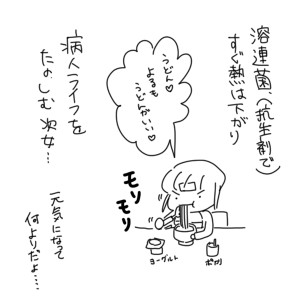 溶連菌、(抗生剤で)
すぐ熱は下がり
うどん♡
よるも
うどんがいい♡
病人ライフを
たのしむ次女…
モリ
モリ
ヨーグルト
ポカリ
元気になって
何よりだよ…